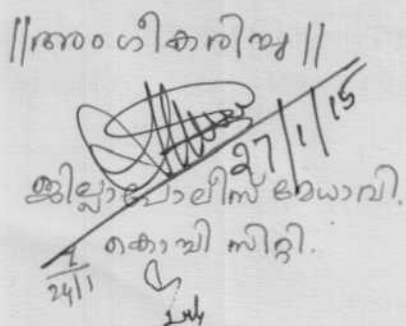 ||അംഗീകരിച്ചു||
27/1/15
ജില്ലാപോലീസ് മേധാവി.
കൊച്ചി സിറ്റി.
24/1